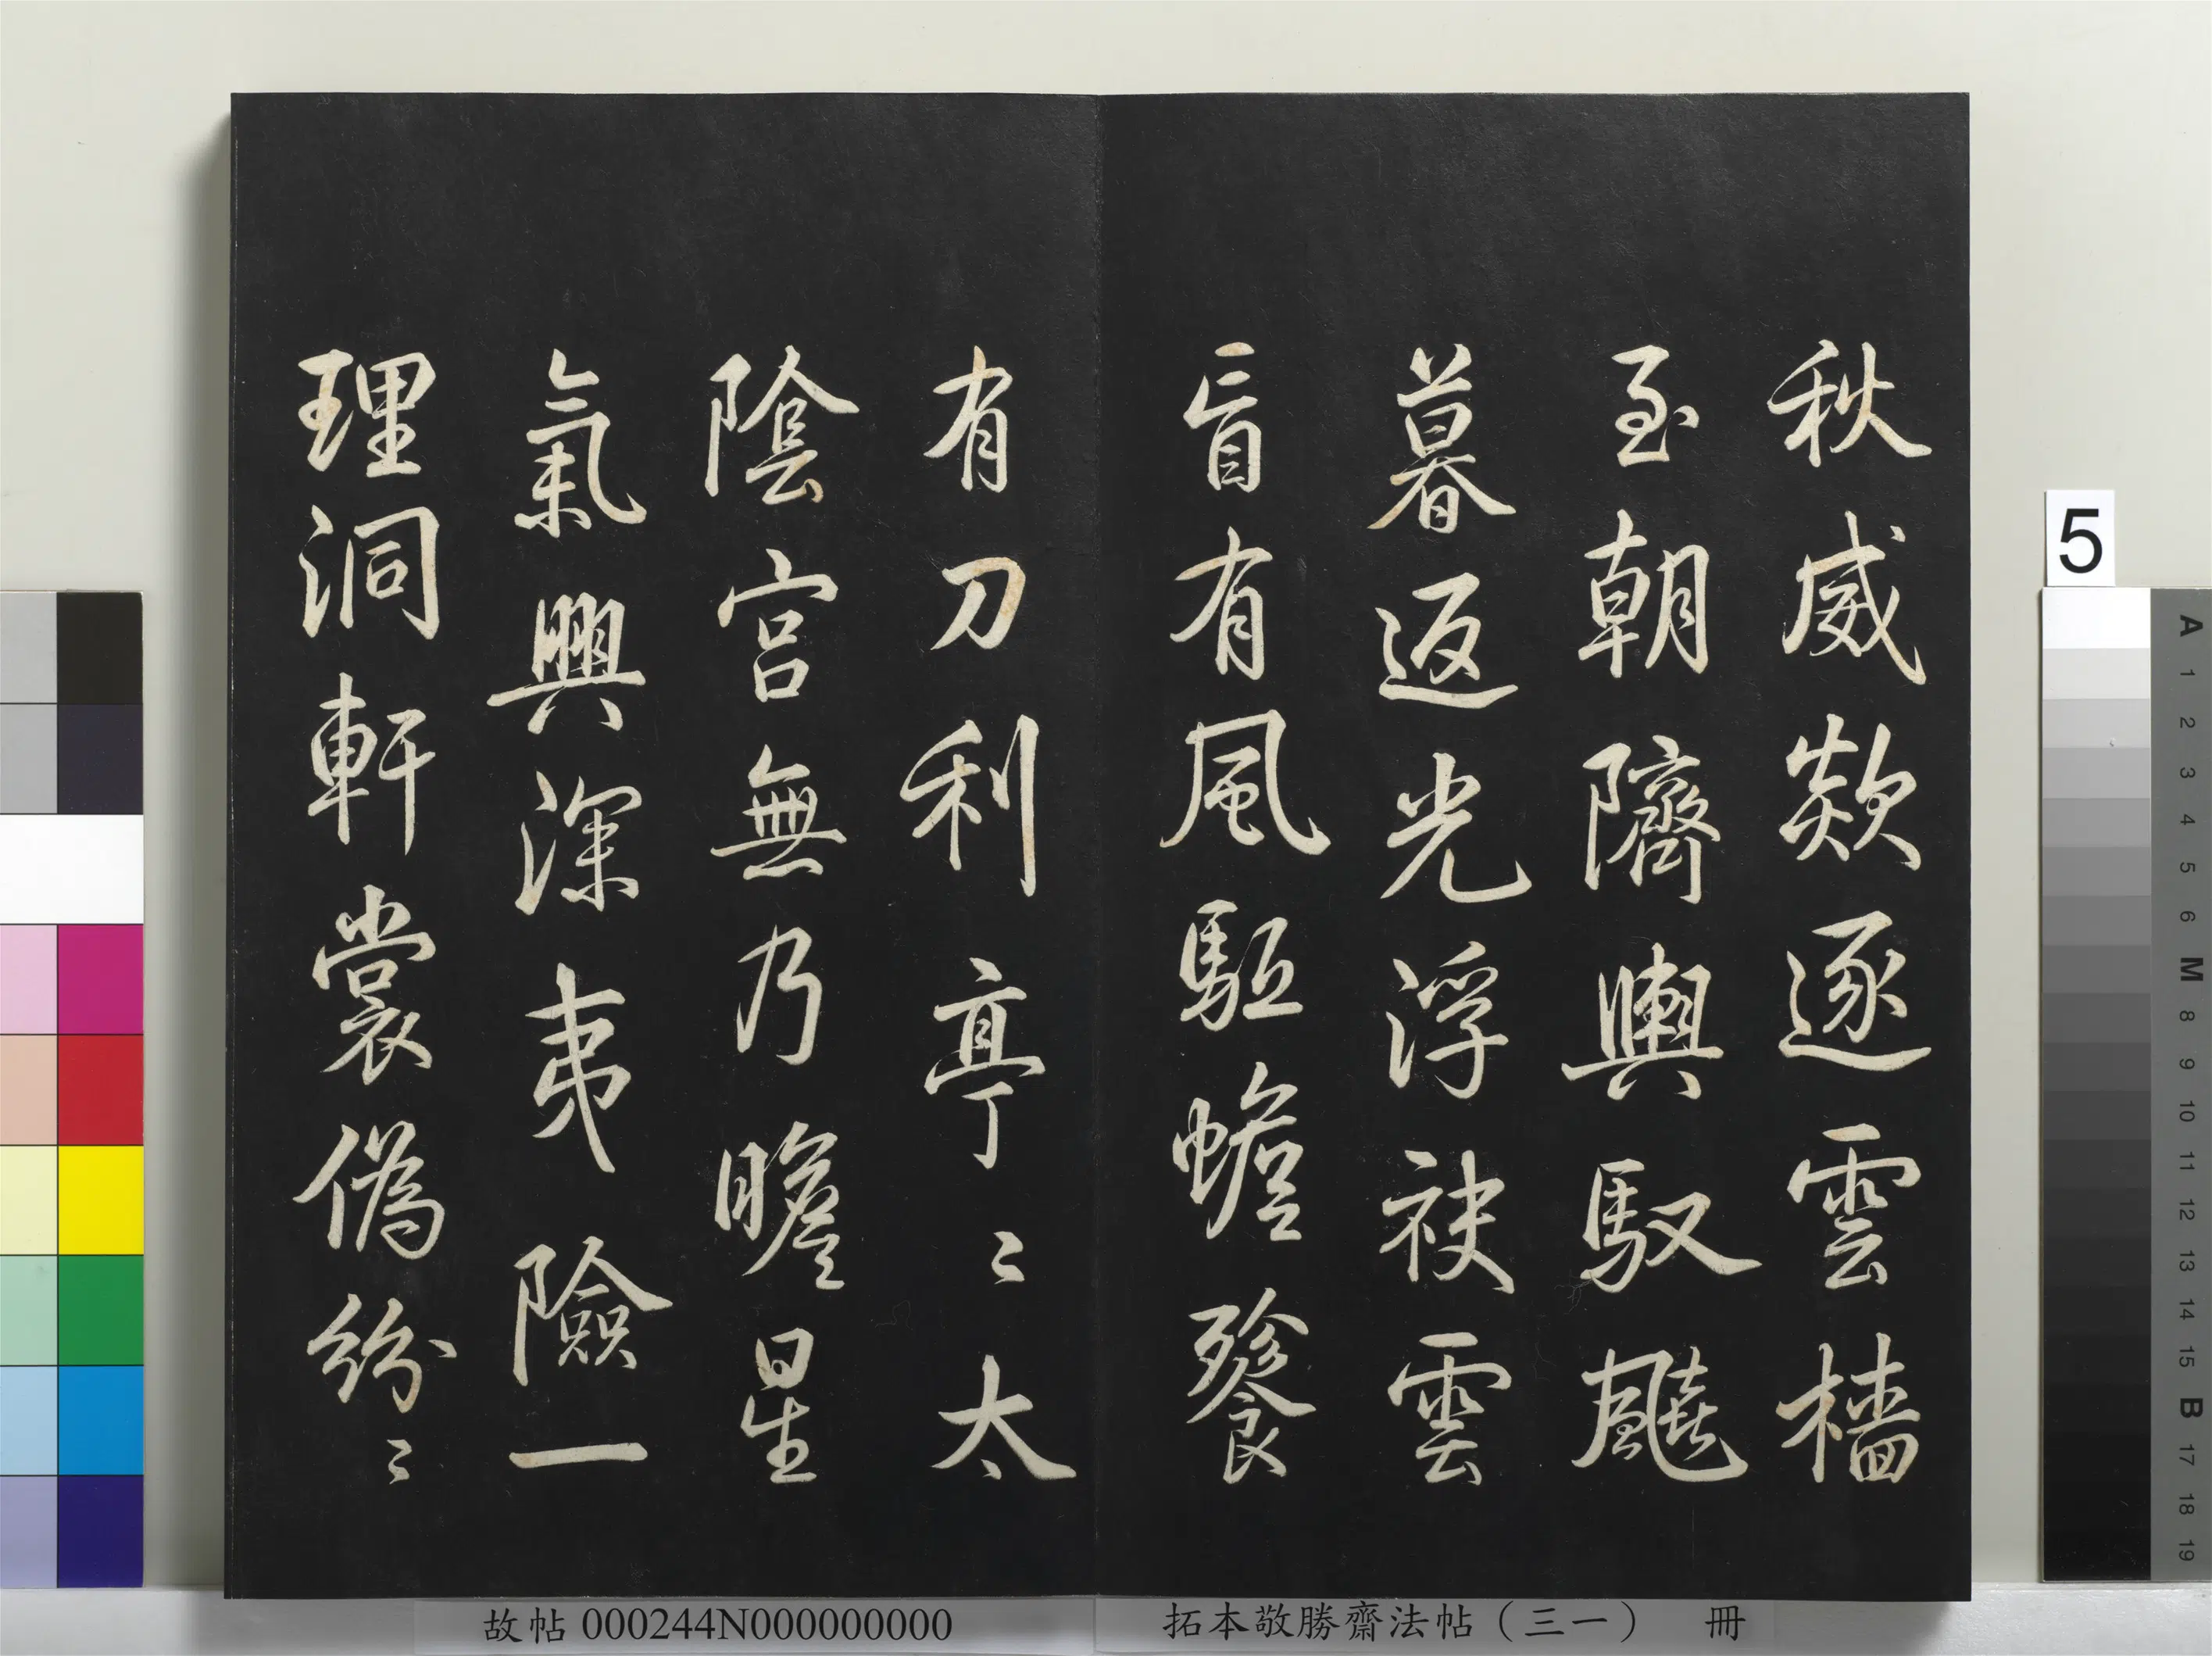 秋威欻逐雲檣
至朝隮輿馭飈
暮返光浮袂雲
盲有風駈蟾餮
有刀利亭〻太
陰宮無乃瞻星
氣興深夷險一
理洞軒裳偽紛〻
5
A 1 2 3 4 5 6 M 8 9 10 11 12 13 14 15 B 17 18 19
故帖 000244N000000000
拓本敬勝齋法帖（三一） 冊